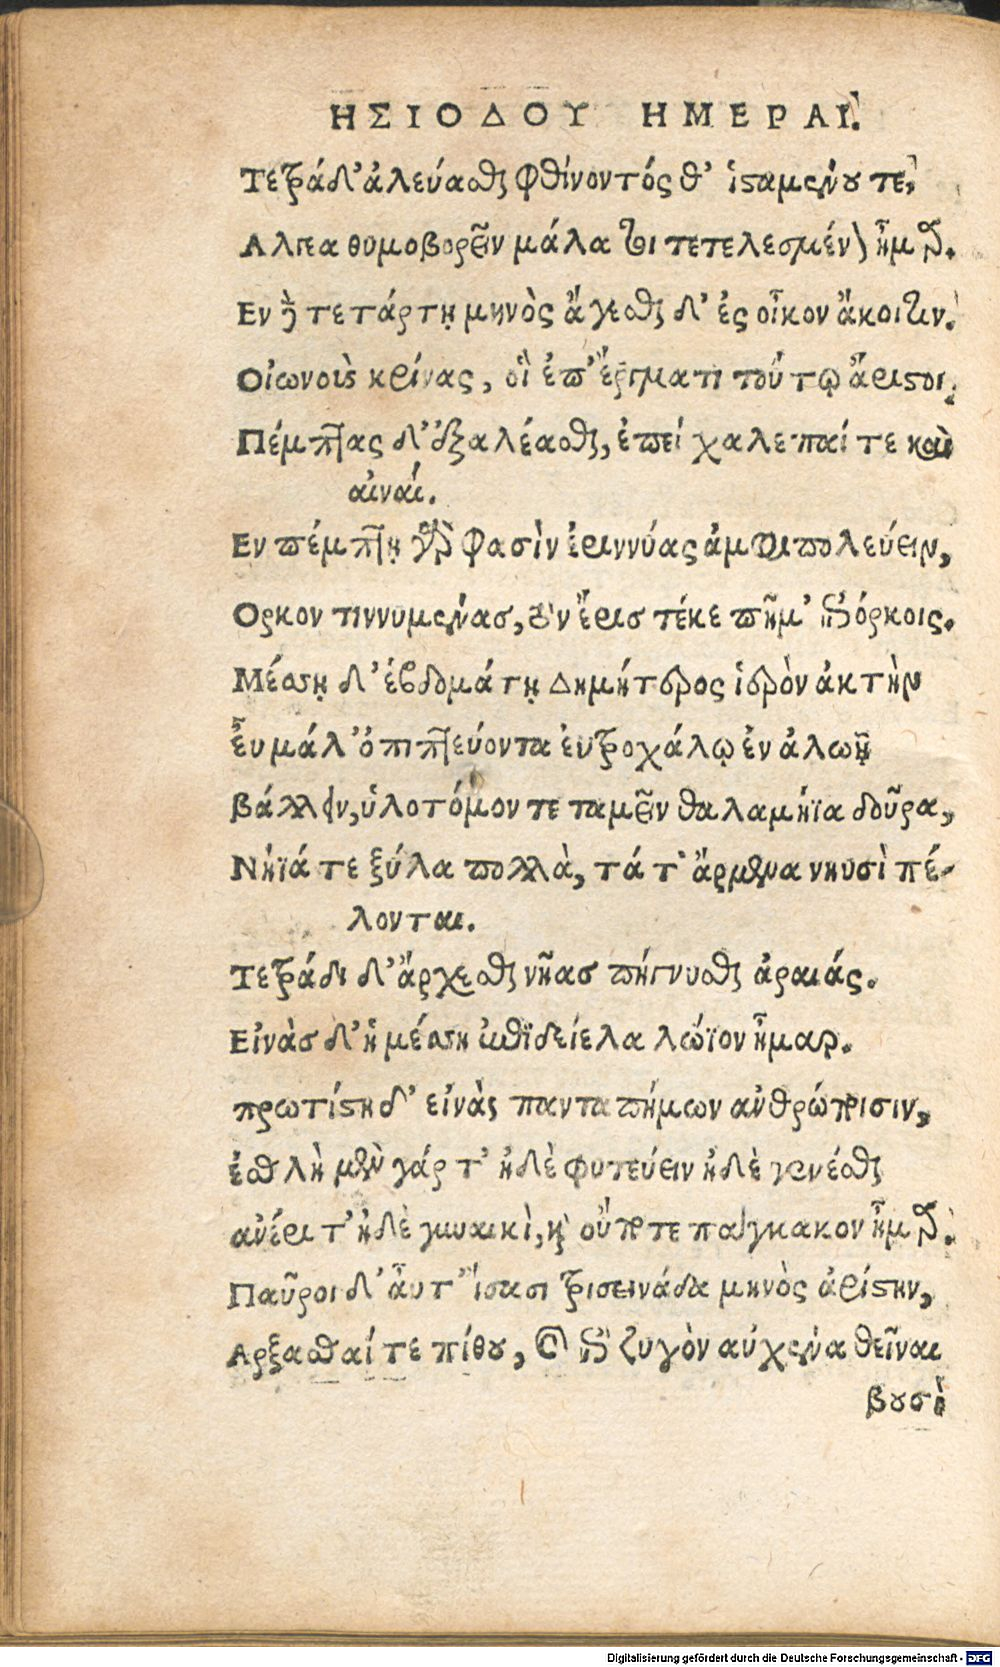 ΗΣΙΟΔΟΥ ΗΜΕΡΑΙ.
Τετράδ' ἀλεύασθαι φθίνοντός θ' ἱσταμένου τε,
Αλγεα θυμοβορεῖν μάλα τοι τετελεσμένον ἦμαρ.
Εν δὲ τετάρτῃ μηνὸς ἄγεσθαι δ' ἐς οἶκον ἄκοιτιν.
Οἰωνοὺς κρίνας, οἳ ἐπ' ἔργματι τούτῳ ἄριστοι.
Πέμπτας δ' ἐξαλέασθαι, ἐπεί χαλεπαί τε καὶ
αἰναί.
Εν πέμπτῃ γὰρ φασὶν ἐριννύας ἀμφιπολεύειν,
Ορκον τιννυμένας, ὃν ἔρις τέκε πῆμ' ἐπιόρκοις.
Μέσσῃ δ' ἑβδομάτῃ Δημήτερος ἱερὸν ἀκτὴν
εὖ μάλ' ὀπιπτεύοντα ἐυτροχάλῳ ἐν ἀλωῇ
βάλλειν, ὑλοτόμον τε ταμεῖν θαλαμήϊα δοῦρα,
Νήϊά τε ξύλα πολλὰ, τά τ' ἄρμενα νηυσὶ πέ-
λονται.
Τετράδι δ' ἄρχεσθαι νῆας πήγνυσθαι ἀραιάς.
Εἰνὰς δ' ἡ μέσση ἐπιδείελα λώϊον ἦμαρ.
πρωτίστη δ' εἰνὰς παναπήμων ἀνθρώποισιν,
ἐσθλὴ μὲν γάρ τ' ἠδὲ φυτεύειν ἠδὲ γενέσθαι
ἀνέρι τ' ἠδὲ γυναικὶ, καὶ οὔποτε πάγκακον ἦμαρ.
Παῦροι δ' αὖτ' ἴσασι τρισεινάδα μηνὸς ἀρίστην,
Αρξασθαί τε πίθου, καὶ ἐπὶ ζυγὸν αὐχένα θεῖναι
βουσὶ
Digitalisierung gefördert durch die Deutsche Forschungsgemeinschaft - DFG